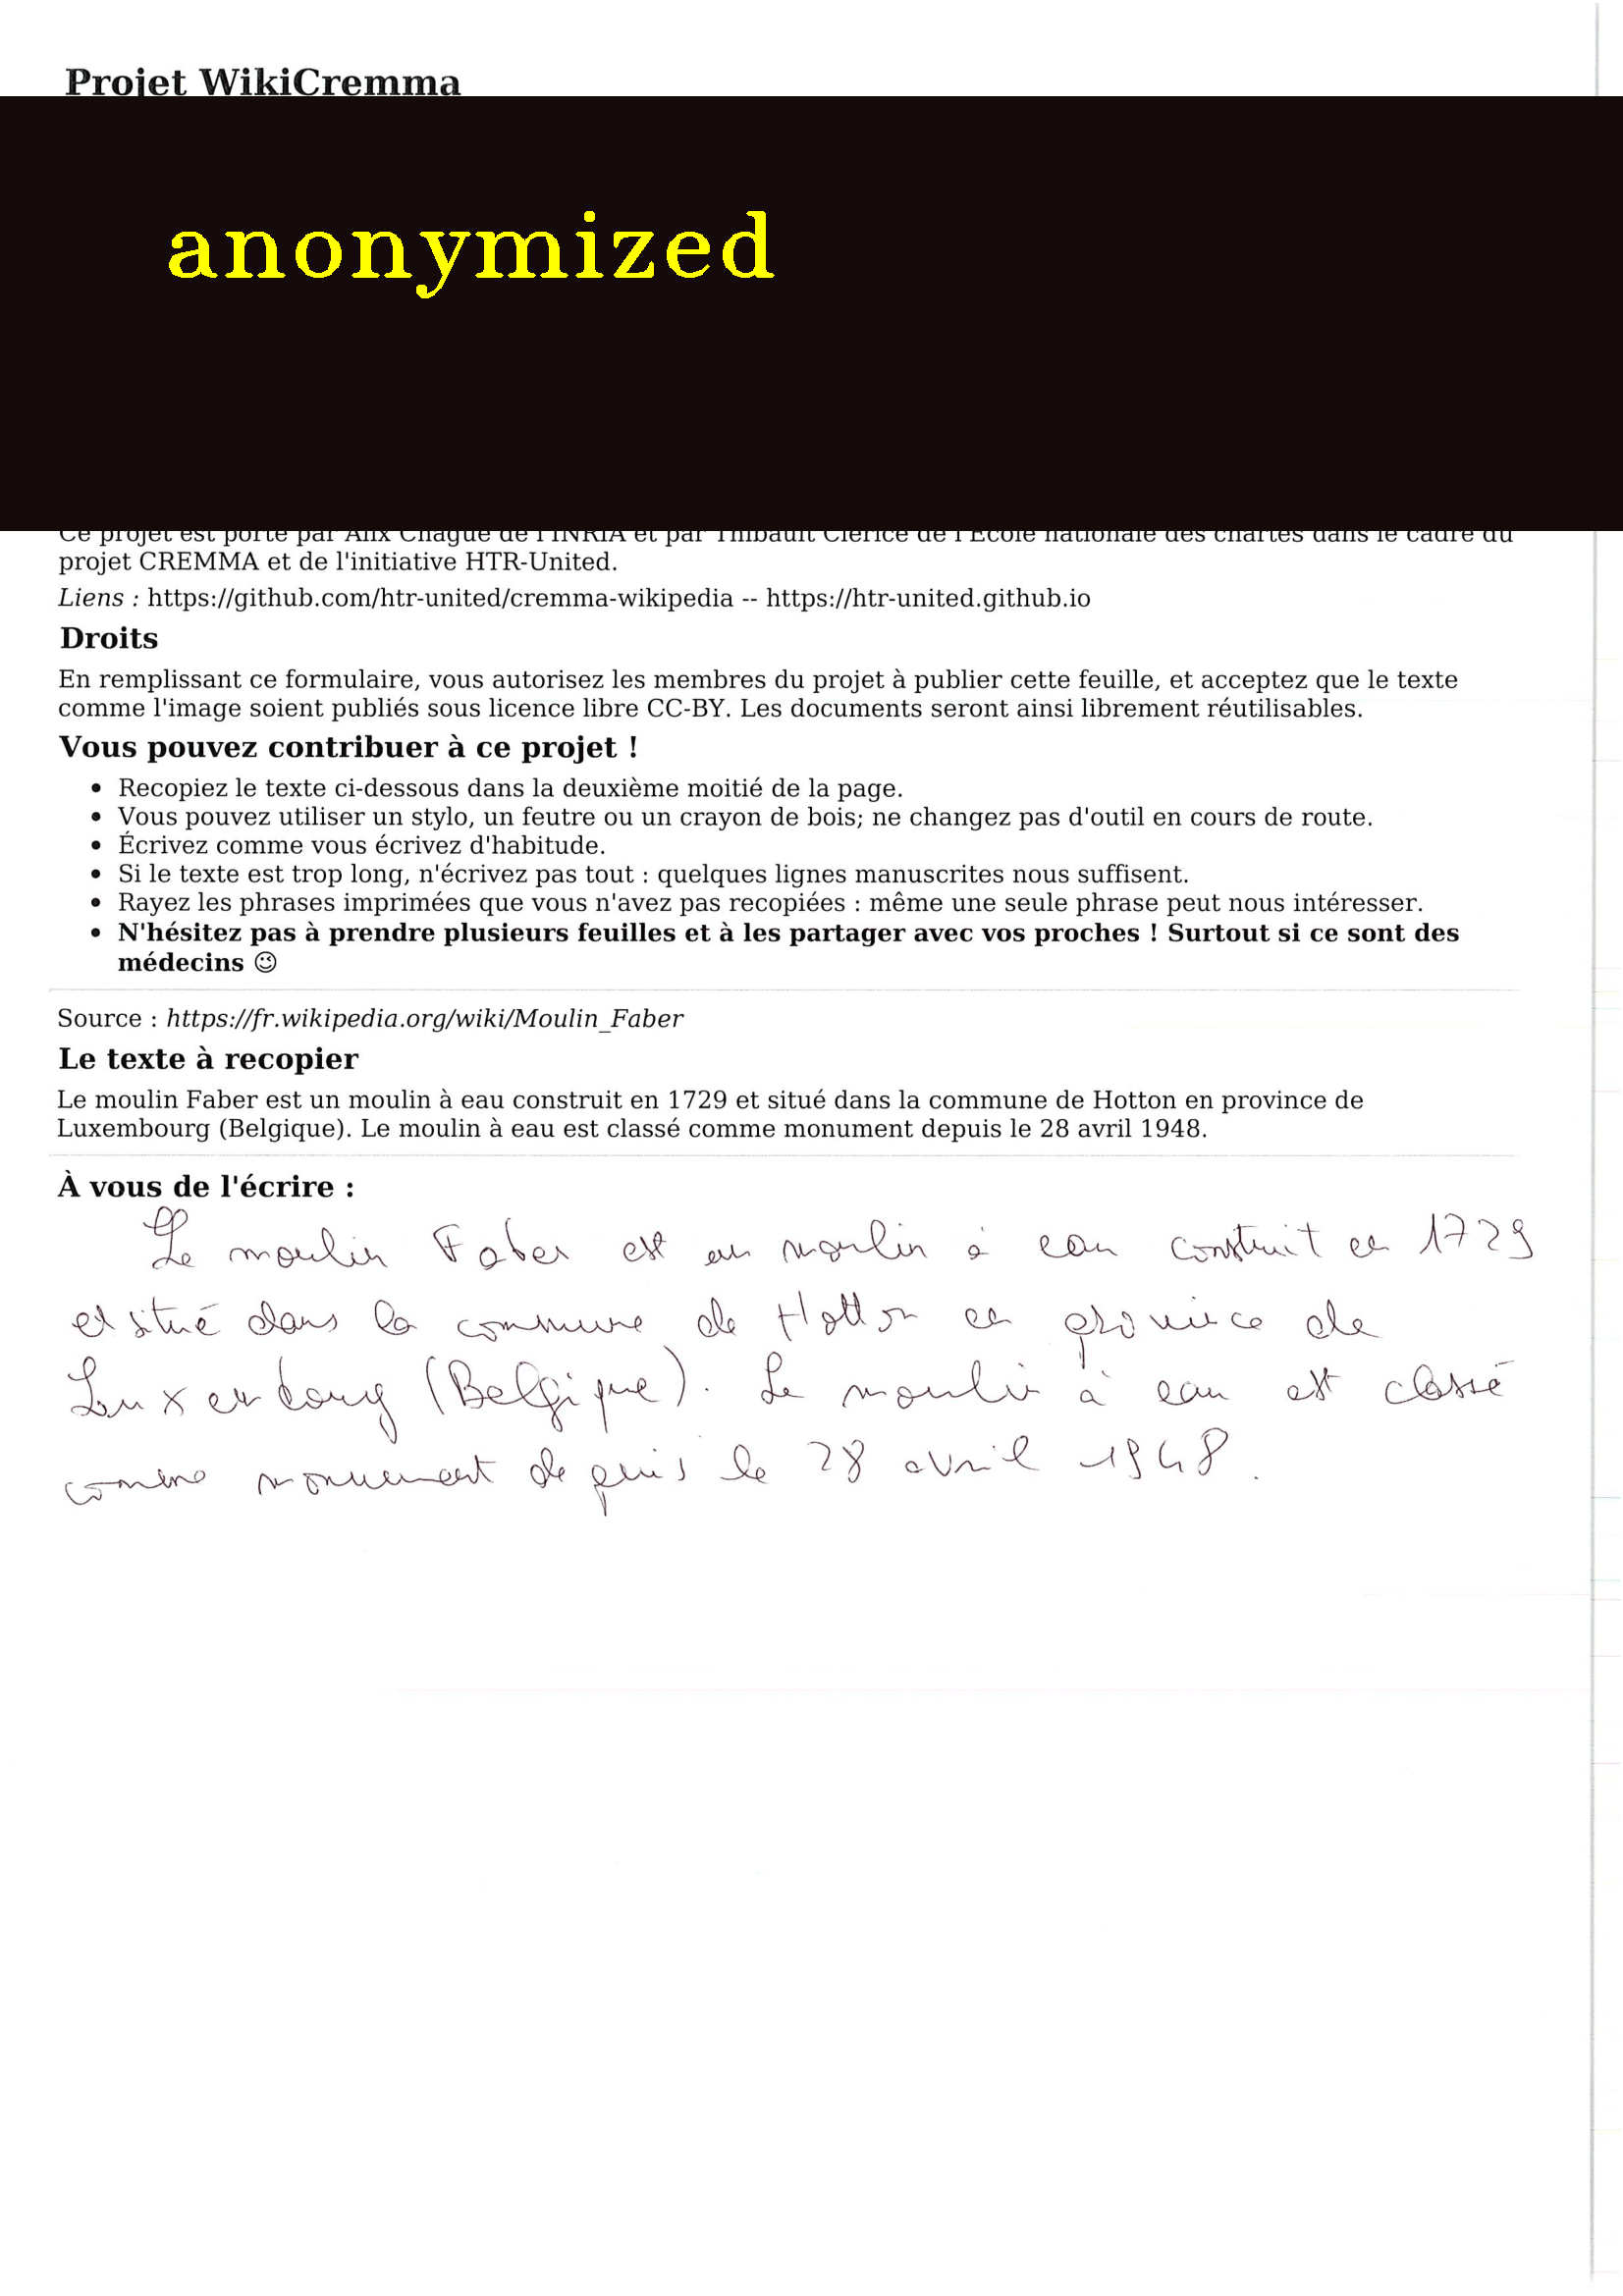 Projet WikiCremma
anonymized
Ce projet est porté par Alix Chagué de l'INRIA et par Thibault Clérice de l'École nationale des chartes dans le cadre du
projet CREMMA et de l'initiative HTR-United.
Liens : https://github.com/htr-united/cremma-wikipedia -- https://htr-united.github.io
Droits
En remplissant ce formulaire, vous autorisez les membres du projet à publier cette feuille, et acceptez que le texte
comme l'image soient publiés sous licence libre CC-BY. Les documents seront ainsi librement réutilisables.
Vous pouvez contribuer à ce projet !
• Recopiez le texte ci-dessous dans la deuxième moitié de la page.
• Vous pouvez utiliser un stylo, un feutre ou un crayon de bois; ne changez pas d'outil en cours de route.
• Écrivez comme vous écrivez d'habitude.
• Si le texte est trop long, n'écrivez pas tout : quelques lignes manuscrites nous suffisent.
• Rayez les phrases imprimées que vous n'avez pas recopiées : même une seule phrase peut nous intéresser.
• N'hésitez pas à prendre plusieurs feuilles et à les partager avec vos proches ! Surtout si ce sont des
médecins 😉
Source : https://fr.wikipedia.org/wiki/Moulin_Faber
Le texte à recopier
Le moulin Faber est un moulin à eau construit en 1729 et situé dans la commune de Hotton en province de
Luxembourg (Belgique). Le moulin à eau est classé comme monument depuis le 28 avril 1948.
À vous de l'écrire :
Le moulin Faber est un moulin à eau construit en 1729
et situé dans la commune de Hotton en province de
Luxembourg (Belgique). Le moulin à eau est classé
comme monument depuis le 28 avril 1948.